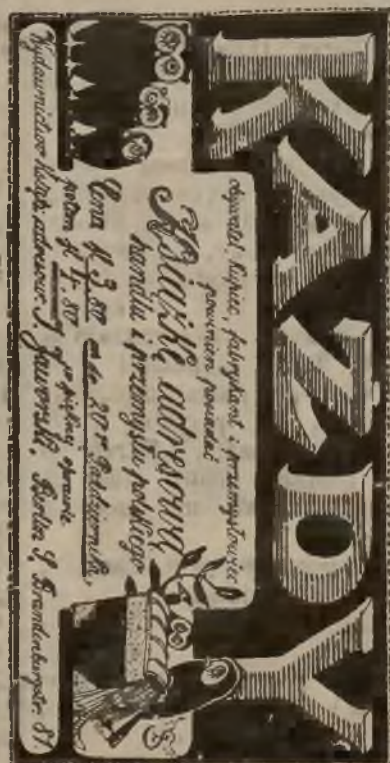 KAZDY
obywatel, kupiec, fabrykant i przemysłowiec
powinien posiadać
Książkę adresową
handlu i przemysłu polskiego
Cena M. 3.80 do 20go Października,
potem M. 4.80 w pięknej oprawie.
Wydawnictwo Książk. adresow. J. Jaworski, Berlin S. Brandenburgstr. 81.